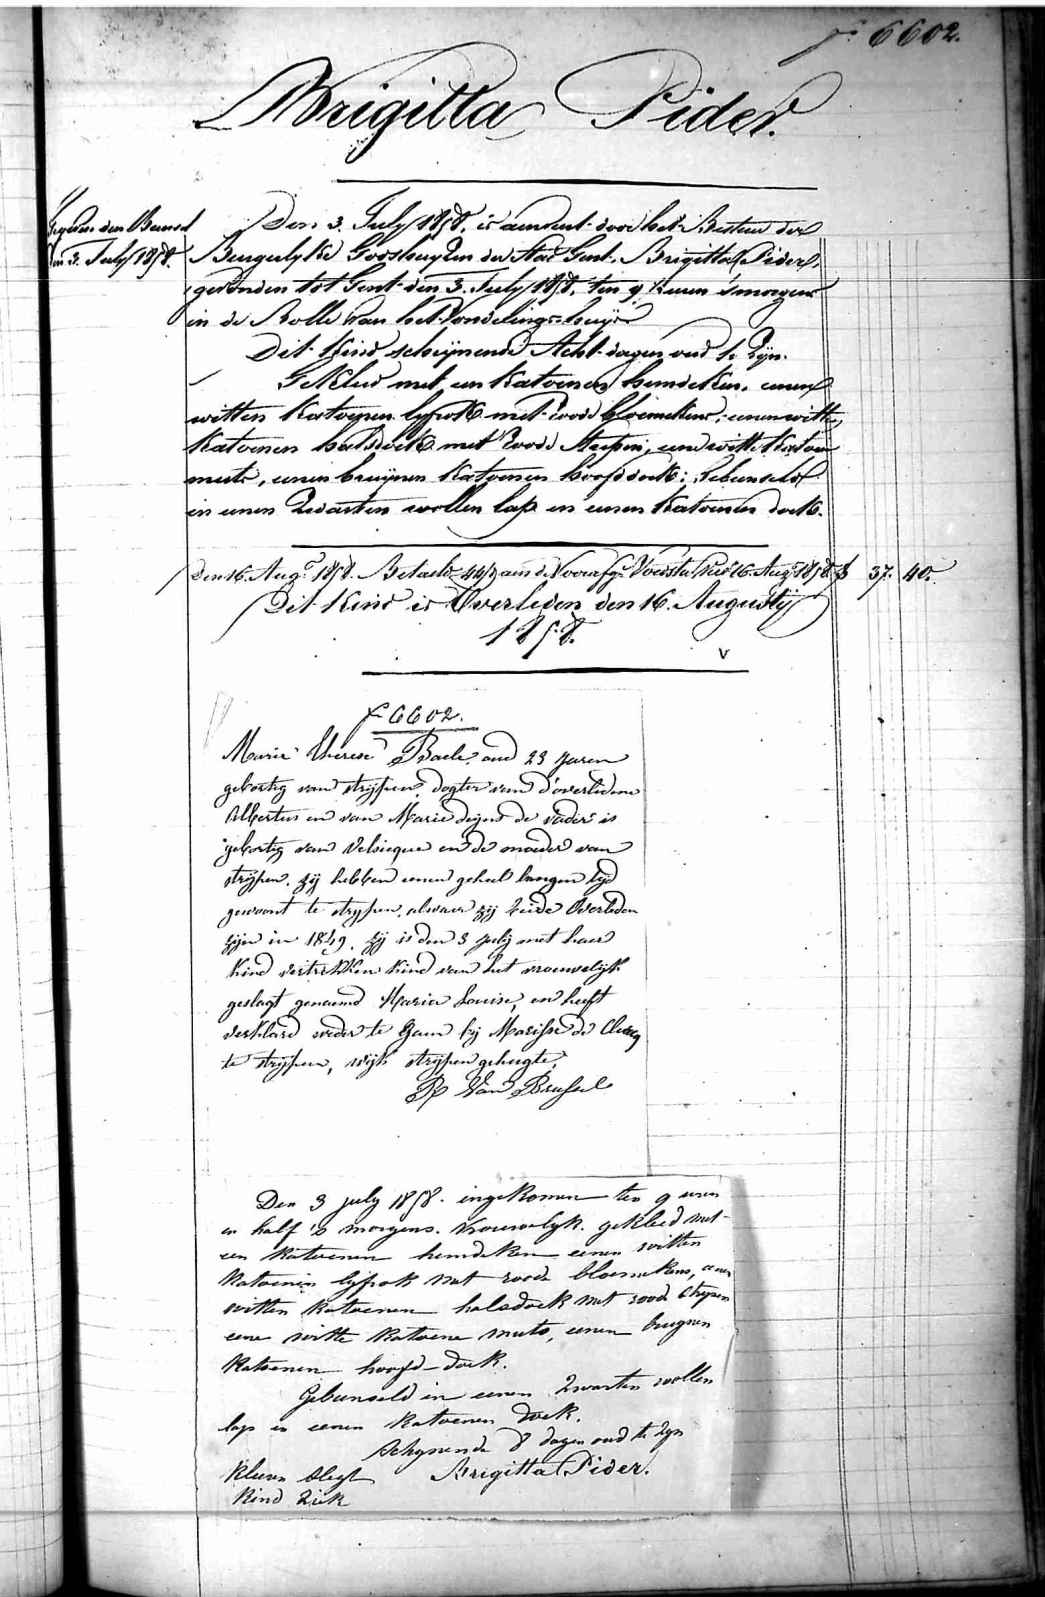 f° 6602.
Brigitta Pider.
den 3. July 1858.
Den 3. July 1858. is aenveert door het Bestuer der
Burgerlyke Godshuyzen der Stad Gent. Brigitta Pider,
gevonden tot Gent den 3. July 1858. ten 9 ½ uren 'smorgens
in de Rolle van het Vondelingshuys
Dit Kind schynende Acht dagen oud te zyn.
Gekleed met een Katoenen hemdeken, eenen
witten Katoenen lyfrok met roode bloemekens, eenen witten
Katoenen halsdoek met roode streepen, eene witte Katoene
muts, eenen bruynen Katoenen hoofddoek; Gebunseld
in eenen Zwarten wollen lap en eenen Katoenen doek.
Den 16. Augt 1858. Betaeld aen de Voorsg. Voedster 16 Augt 1858 37. 40.
Dit Kind is Overleden den 16. Augusty
1858.
f° 6602.
Marie Therese Baele oud 23 Jaren
gebortig van strypen. dogter van d'overledene
Albertus en van Marie de vader is
gebortig van Velsicque en de moeder van
strijpen. zy hebben eenen geheel langen tyd
gewoont te strypen, alwaer zy beide Overleden
zyn in 1849. zy is den 3 july met haer
Kind vertrokken Kind van het vrouwelyk
geslagt genaemd Maria Louise, en heeft
verklaerd weder te gaen by de Clercq
te strypen, wyk strypen gehugte,
Van Brussel
Den 3 july 1858. ingekomen ten 9 uren
en half 's morgens. Vrouwelyk. gekleed met
een Katoenen hemdeken eenen witten
Katoenen lyfrok met roode bloemekens, eenen
witten Katoenen halsdoek met roode strepen
eene witte Katoene muts, eenen bruynen
Katoenen hoofd-doek.
Gebunseld in eenen Zwarten wollen
lap en eenen Katoenen doek.
Schynende 8 dagen oud te zyn
Kleeren slegt Brigitta Pider.
Kind Ziek